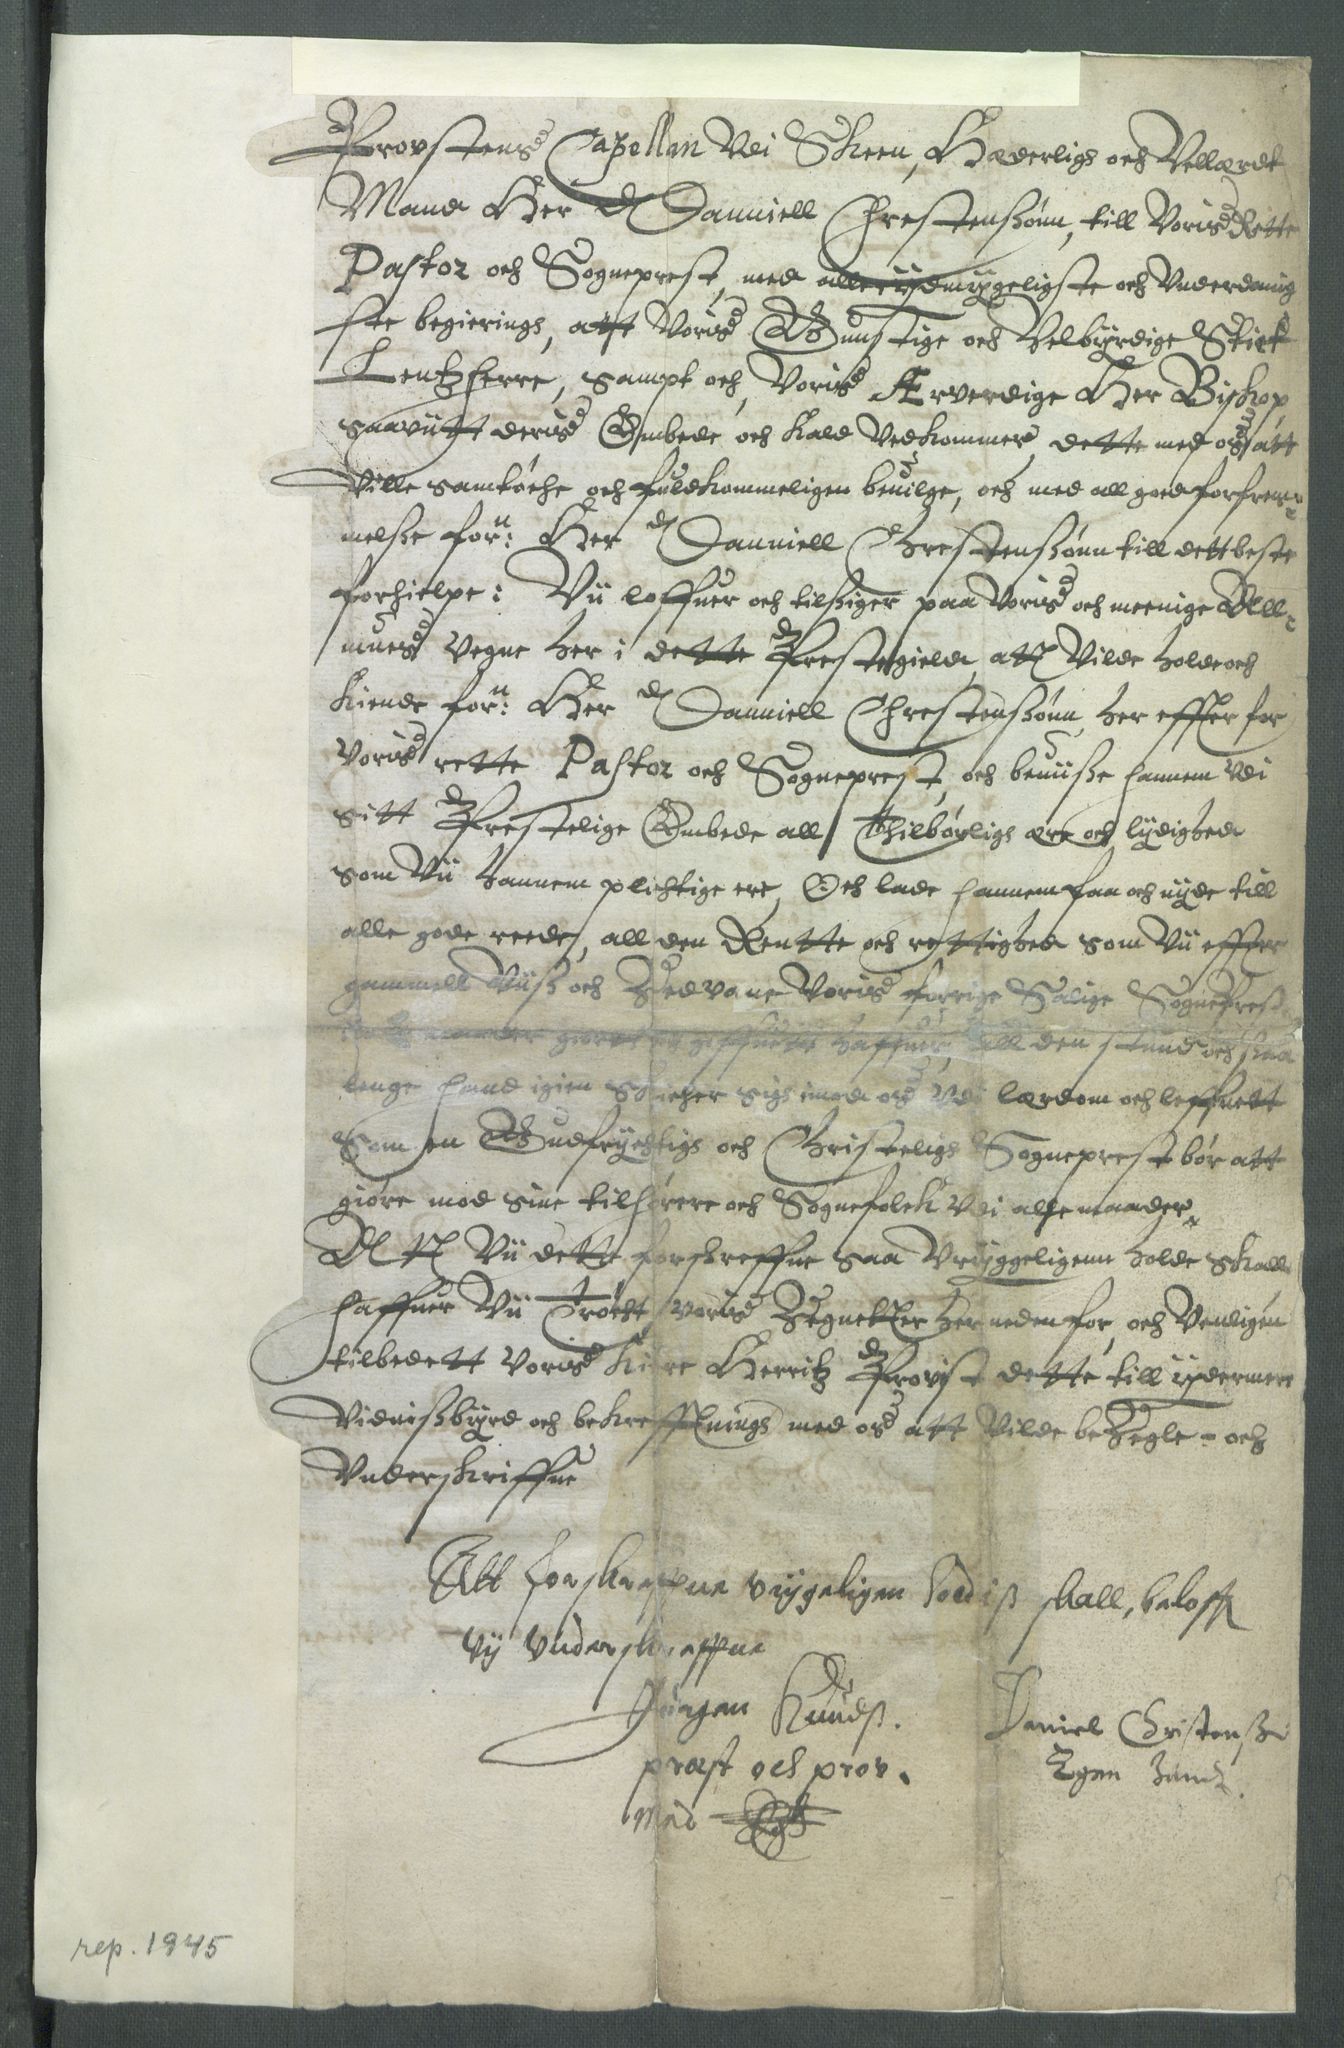 Provstens Capellan Vdi Skeen, Hæderligh och Vellærdt
Mand Her Danniell Chrestenßønn, till Voris Rette
Pastor och Sogneprest, med aller ydmygeligste och Vnderdanig
ste begierings, att Voris Gunstige och Velbyrdige Stict
Lentzherre, sampt och Voris Ærverdige Her Biskop
saavitt deris Embede och Kald Vedkommer, dette med os att
Ville samtøche och fuldkommeligen beuilge, och med all goed forfrem¬
melße forn: Her Danniell Chrestenßønn till dett beste
forhielpe: Vii loffuer och tilßiger paa Voris och meenige All¬
mues Vegne her i dette Prestegield, att Vilde holde och
Kiende forn: Her Danniell Chrestenßønn her effter for
Voris rette Pastor och Sogneprest, och beuiiße hannem Vdi
sitt Prestelige Embede all Thilbørligh ære och lydighed
som Vii hannem plichtige ere, Och lade hannem faa och nyde till
alle gode reede, all den Rentte och rettighed som Vii effter
gammell Viiß och Sedvane Voris forrige Salige Sognepreß
giort och giffuett haffuer, till den stund och saa
lenge hand igien schicher sigh imod os Vdi lærdom och leffnett
Som en Gudfrychtigh och Christeligh Sogneprest bør att
giøre mod sine tilhørere och Sognefolck Vdi alle maader,
Att Vii dette forschreffne saa Vryggeligenn holde skall
haffuer Vii Trøcht Voris Zegnetter her nedenfor, och Venligen
tilbedett Voris Kiere Herritz Provist dette till ydermere
Vidnißbyrd och bekrefftnings med os att Vilde beZegle - och
Vnderskriffue
Att forskreffne vrygeligen holdiß skall, beloff
vy vnderskreffne
Jurgen Knudß.
præst och prov.
Mad
Daniel Christenß
Egen hand.
rep. 1945